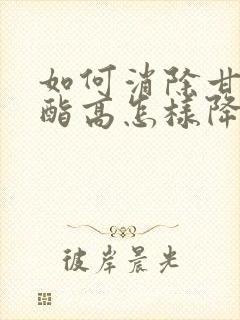 如何消除甘
酯高怎样降
彼岸晨光